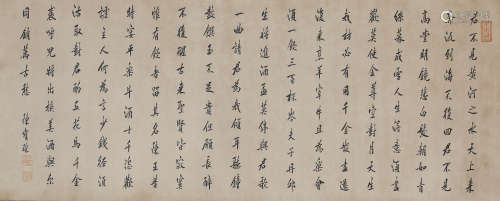 君不見黃河之水天上來
奔流到海不復回君不見
高堂明鏡悲白髮朝如青
絲暮成雪人生得意須盡
歡莫使金尊空對月天生
我材必有用千金散盡還
復來烹羊宰牛且為樂會
須一飲三百杯岑夫子丹邱
生將進酒盃莫停與君歌
一曲請君為我傾耳聽鐘
鼓饌玉不足貴但願長醉
不復醒古來聖賢皆寂寞
惟有飲者留其名陳王昔
時宴平樂斗酒十千恣歡
謔主人何為言少錢徑須
沽取對君酌五花馬千金
裘呼兒將出換美酒與爾
同銷萬古愁 陳寶琛